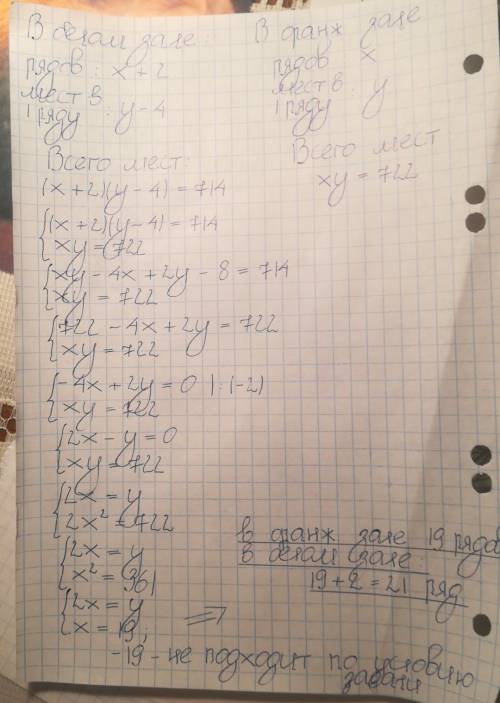 В белом зале:
рядов: x + 2
мест в
1 ряду: y - 4
Всего мест:
(x + 2)(y - 4) = 714
В оранж зале
рядов x
мест в
1 ряду: y
Всего мест
xy = 722
{(x + 2)(y - 4) = 714
{xy = 722
{xy - 4x + 2y - 8 = 714
{xy = 722
{722 - 4x + 2y = 722
{xy = 722
{-4x + 2y = 0 | : (-2)
{xy = 722
{2x - y = 0
{xy = 722
{2x = y
{2x² = 722
{2x = y
{x² = 361
{2x = y
{x = 19;
-19 - не подходит по условию
задачи
⇒
в оранж зале 19 рядов
в белом зале
19 + 2 = 21 ряд